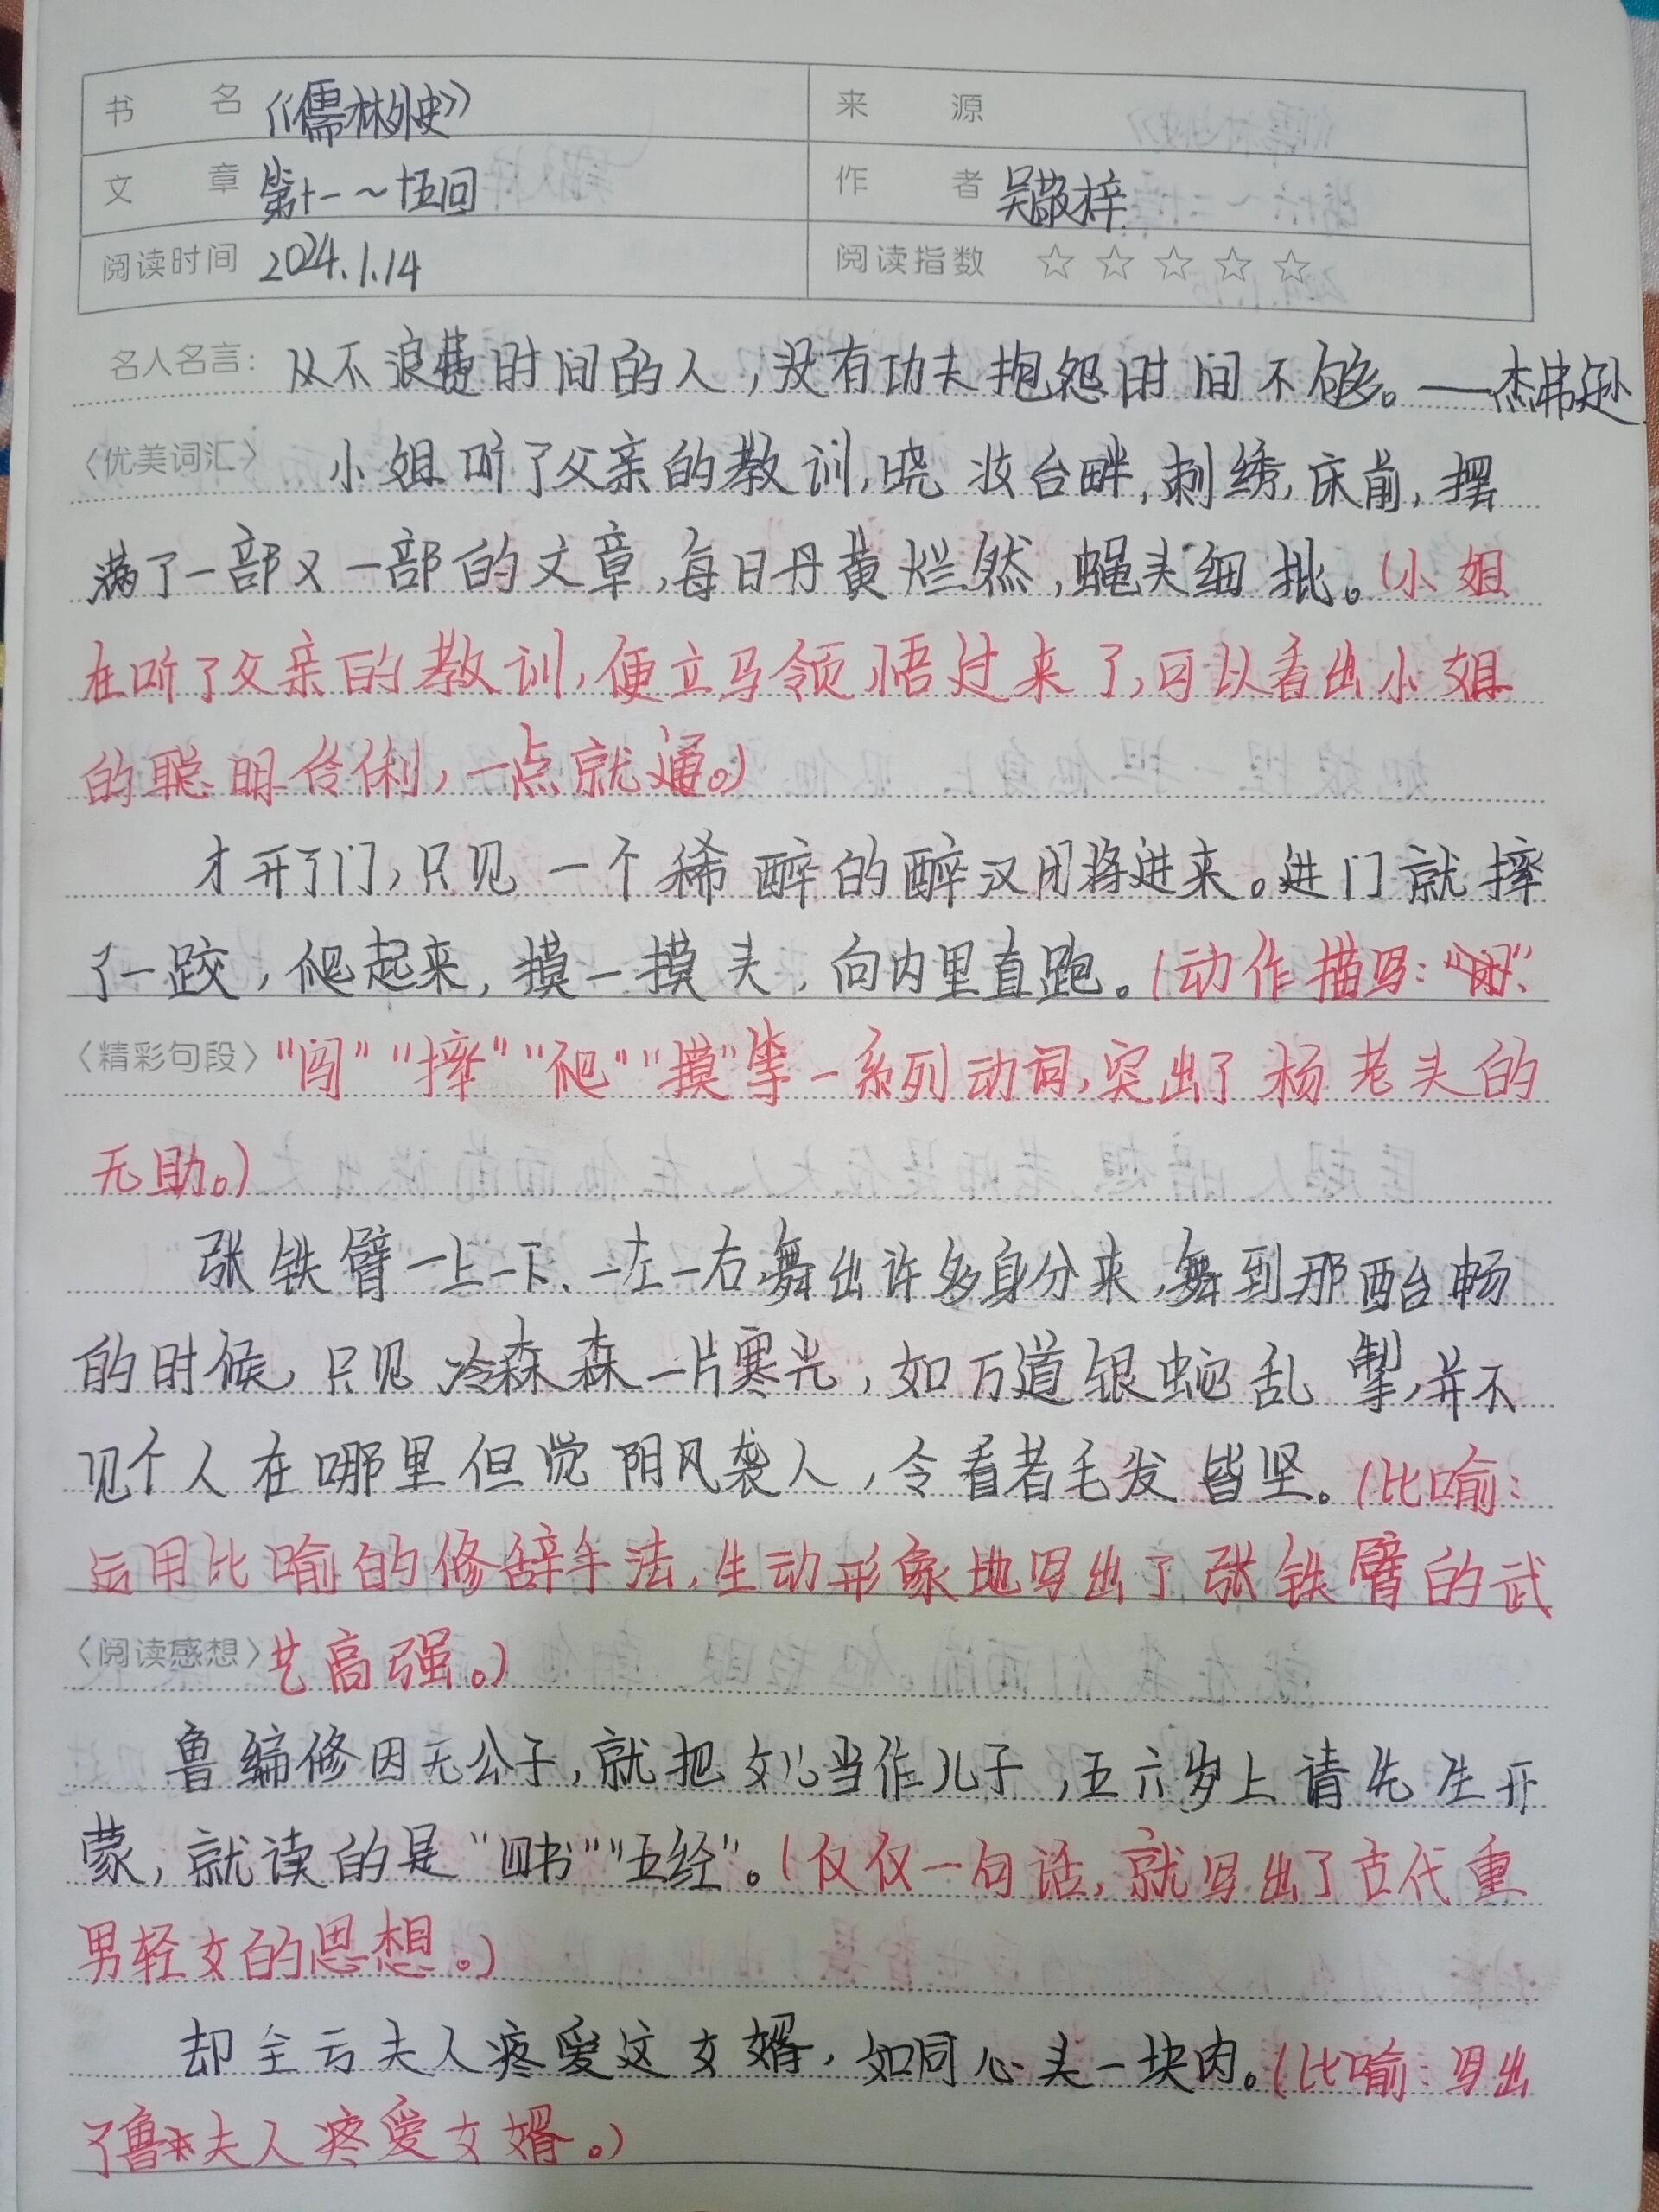 书名 《儒林外史》 来源
文章 第十一～十五回 作者 吴敬梓
阅读时间 2024.1.14 阅读指数 ☆ ☆ ☆ ☆ ☆
名人名言：从不浪费时间的人，没有功夫抱怨时间不够。——杰弗逊
〈优美词汇〉 小姐听了父亲的教训，晓妆台畔，刺绣，床前，摆
满了一部又一部的文章，每日丹黄烂然，蝇头细批。（小姐
在听了父亲的教训，便立马领悟过来了，可以看出小姐
的聪明伶俐，一点就通。）
才开了门，只见一个稀醉的醉汉闯将进来。进门就摔
了一跤，爬起来，摸一摸头，向内里直跑。（动作描写：
〈精彩句段〉“闯”“摔”“爬”“摸”等一系列动词，突出了杨老头的
无助。）
张铁臂一上一下、一左一右，舞出许多身分来，舞到那酣畅
的时候，只见冷森森一片寒光，如万道银蛇乱掣，并不
见个人在哪里但觉阴风袭人，令看者毛发皆坚。（比喻：
运用比喻的修辞手法，生动形象地写出了张铁臂的武
〈阅读感想〉艺高强。）
鲁编修因无公子，就把女儿当作儿子，五六岁上请先生开
蒙，就读的是“四书”“五经”。（仅仅一句话，就写出了古代重
男轻女的思想。）
却全亏夫人疼爱这女婿，如同心头一块肉。（比喻：写出
了鲁夫人疼爱女婿。）